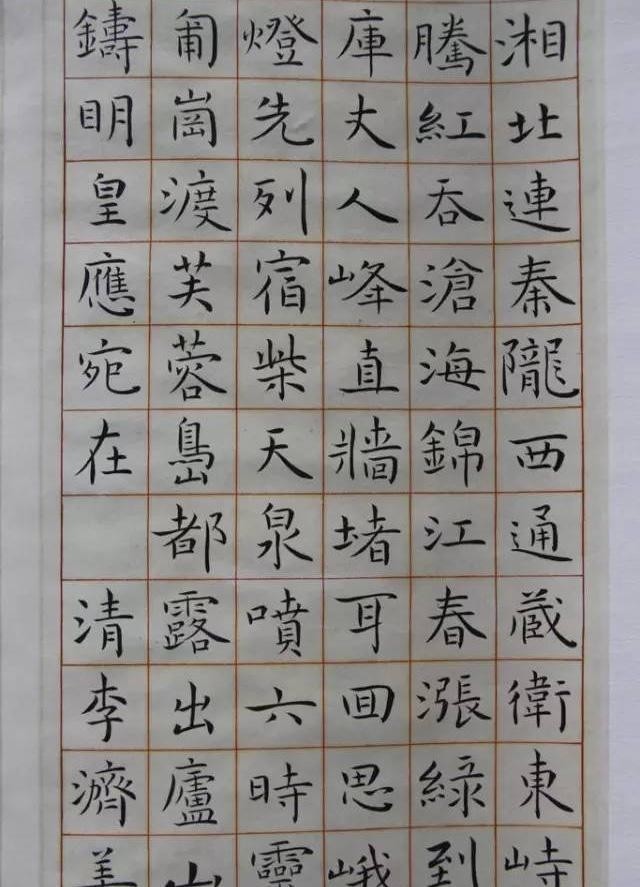 湘北連秦隴西通蔵衛東峙
騰紅吞滄海錦江春漲綠到
庫丈人峰直牆堵耳囬思峨
燈先列宿柴天泉噴六時靈
匍崗渡芙蓉島都露出廬山
鑄明皇應宛在清李濟美